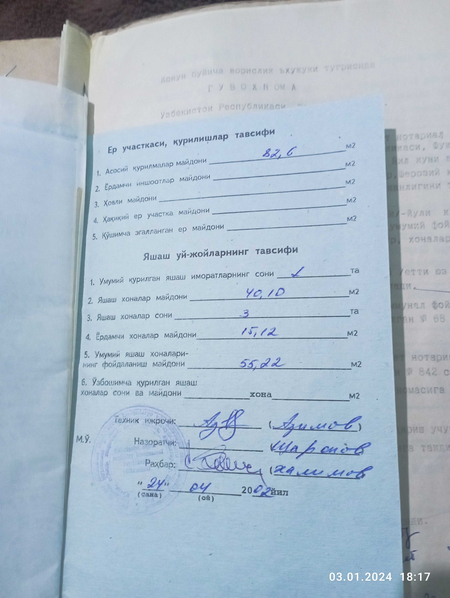 Қонун бўйича ворислик ҳуқуқи тўғрисида
ГУВОҲНОМА
Ўзбекистон Республикаси,
Ер участкаси, қурилишлар тавсифи
1. Асосий қурилмалар майдони 82,6 м2
2. Ёрдамчи иншоотлар майдони м2
3. Ҳовли майдони м2
4. Ҳақиқий ер участка майдони м2
5. Қўшимча эгалланган ер майдони м2
Яшаш уй-жойларнинг тавсифи
1. Умумий қурилган яшаш иморатларнинг сони 1 та
2. Яшаш хоналар майдони 40,10 м2
3. Яшаш хоналар сони 3 та
4. Ёрдамчи хоналар майдони 15,12 м2
5. Умумий яшаш хоналари-
нинг фойдаланиш майдони 55,22 м2
6. Ўзбошимча қурилган яшаш
хоналар сони ва майдони хона м2
Техник ижрочи: (Азимов)
М.Ў. Назоратчи:
Раҳбар: (Халимов
"24" 04 2002 йил
(сана) (ой)
03.01.2024 18:17